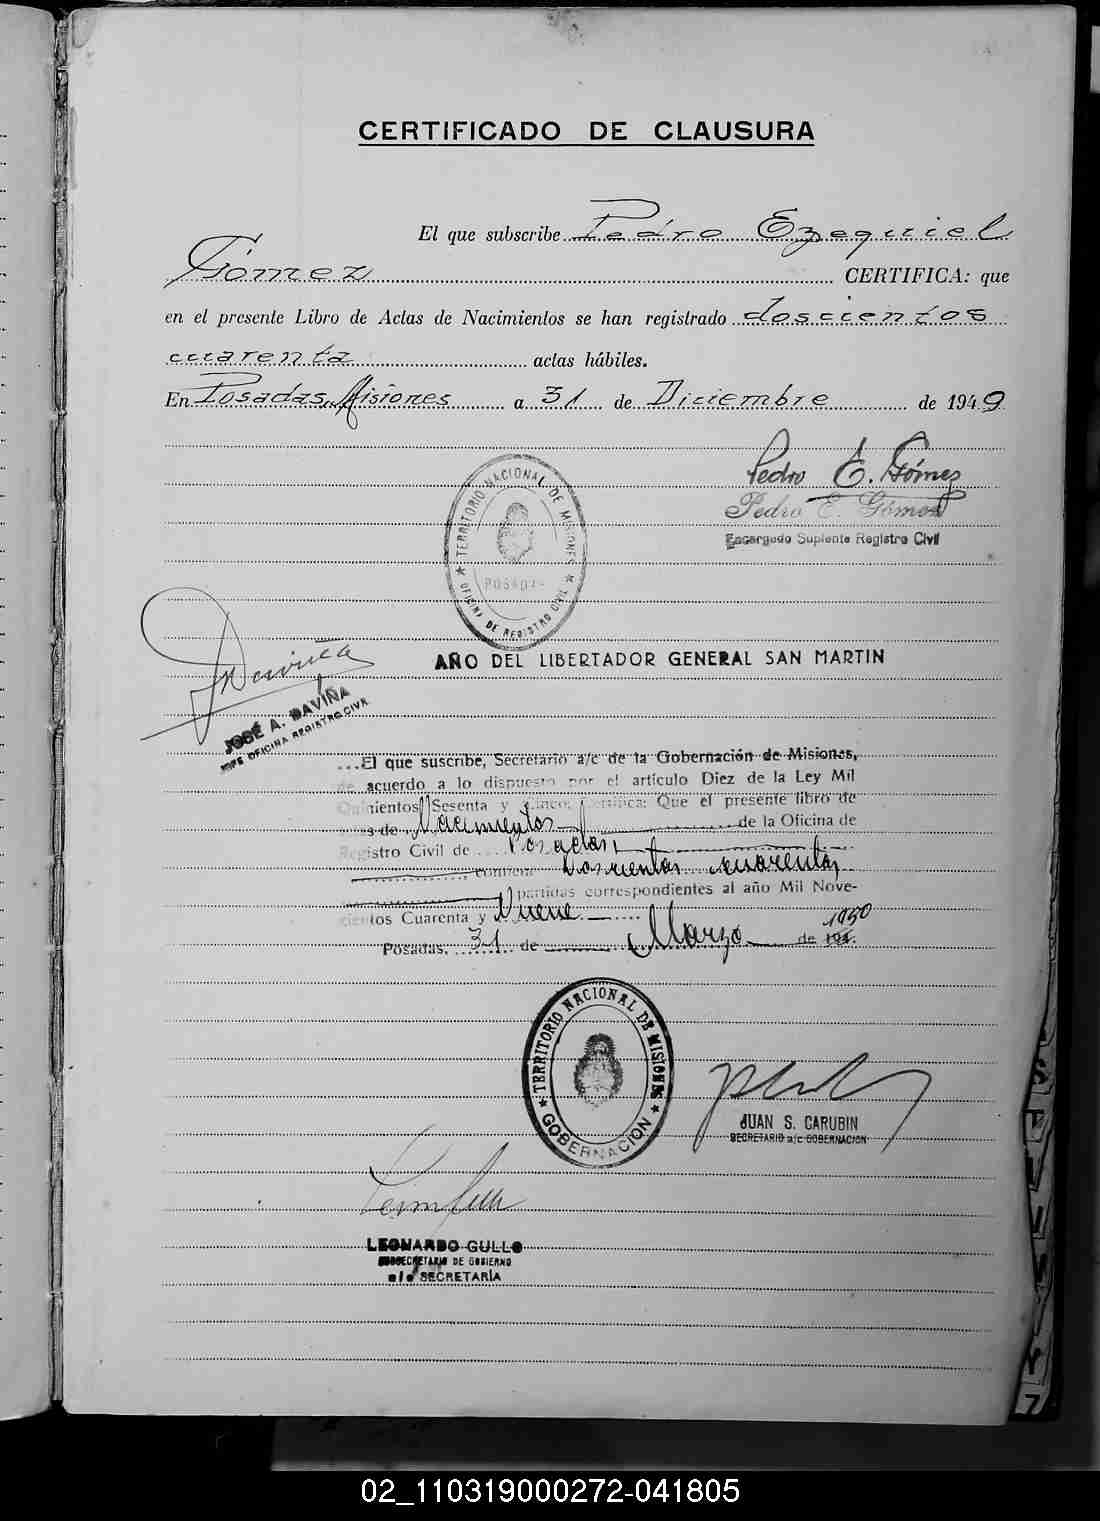 CERTIFICADO DE CLAUSURA
El que subscribe Pedro Ezequiel
Gómez CERTIFICA: que
en el presente Libro de Actas de Nacimientos se han registrado doscientos
cuarenta actas hábiles.
En Posadas, Misiones a 31 de Diciembre de 1949
Pedro E. Gómez
Pedro E. Gómez
Encargado Suplente Registro Civil
TERRITORIO NACIONAL DE MISIONES
POSADAS
OFICINA DE REGISTRO CIVIL
AÑO DEL LIBERTADOR GENERAL SAN MARTIN
JOSÉ A. DAVIÑA
JEFE OFICINA REGISTRO CIVIL
...El que suscribe, Secretario a/c de la Gobernación de Misiones,
de acuerdo a lo dispuesto por el artículo Diez de la Ley Mil
Quinientos Sesenta y Cinco, Certifica: Que el presente libro de
de Nacimientos de la Oficina de
Registro Civil de Posadas,
contiene Doscientos cuarenta
partidas correspondientes al año Mil Nove-
cientos Cuarenta y Nueve
Posadas, 31 de Marzo de 194 1950
TERRITORIO NACIONAL DE MISIONES
GOBERNACION
JUAN S. CARUBIN
SECRETARIO a/c GOBERNACION
LEONARDO GULLO
SUBSECRETARIO DE GOBIERNO
a/c SECRETARÍA
7
02_110319000272-041805